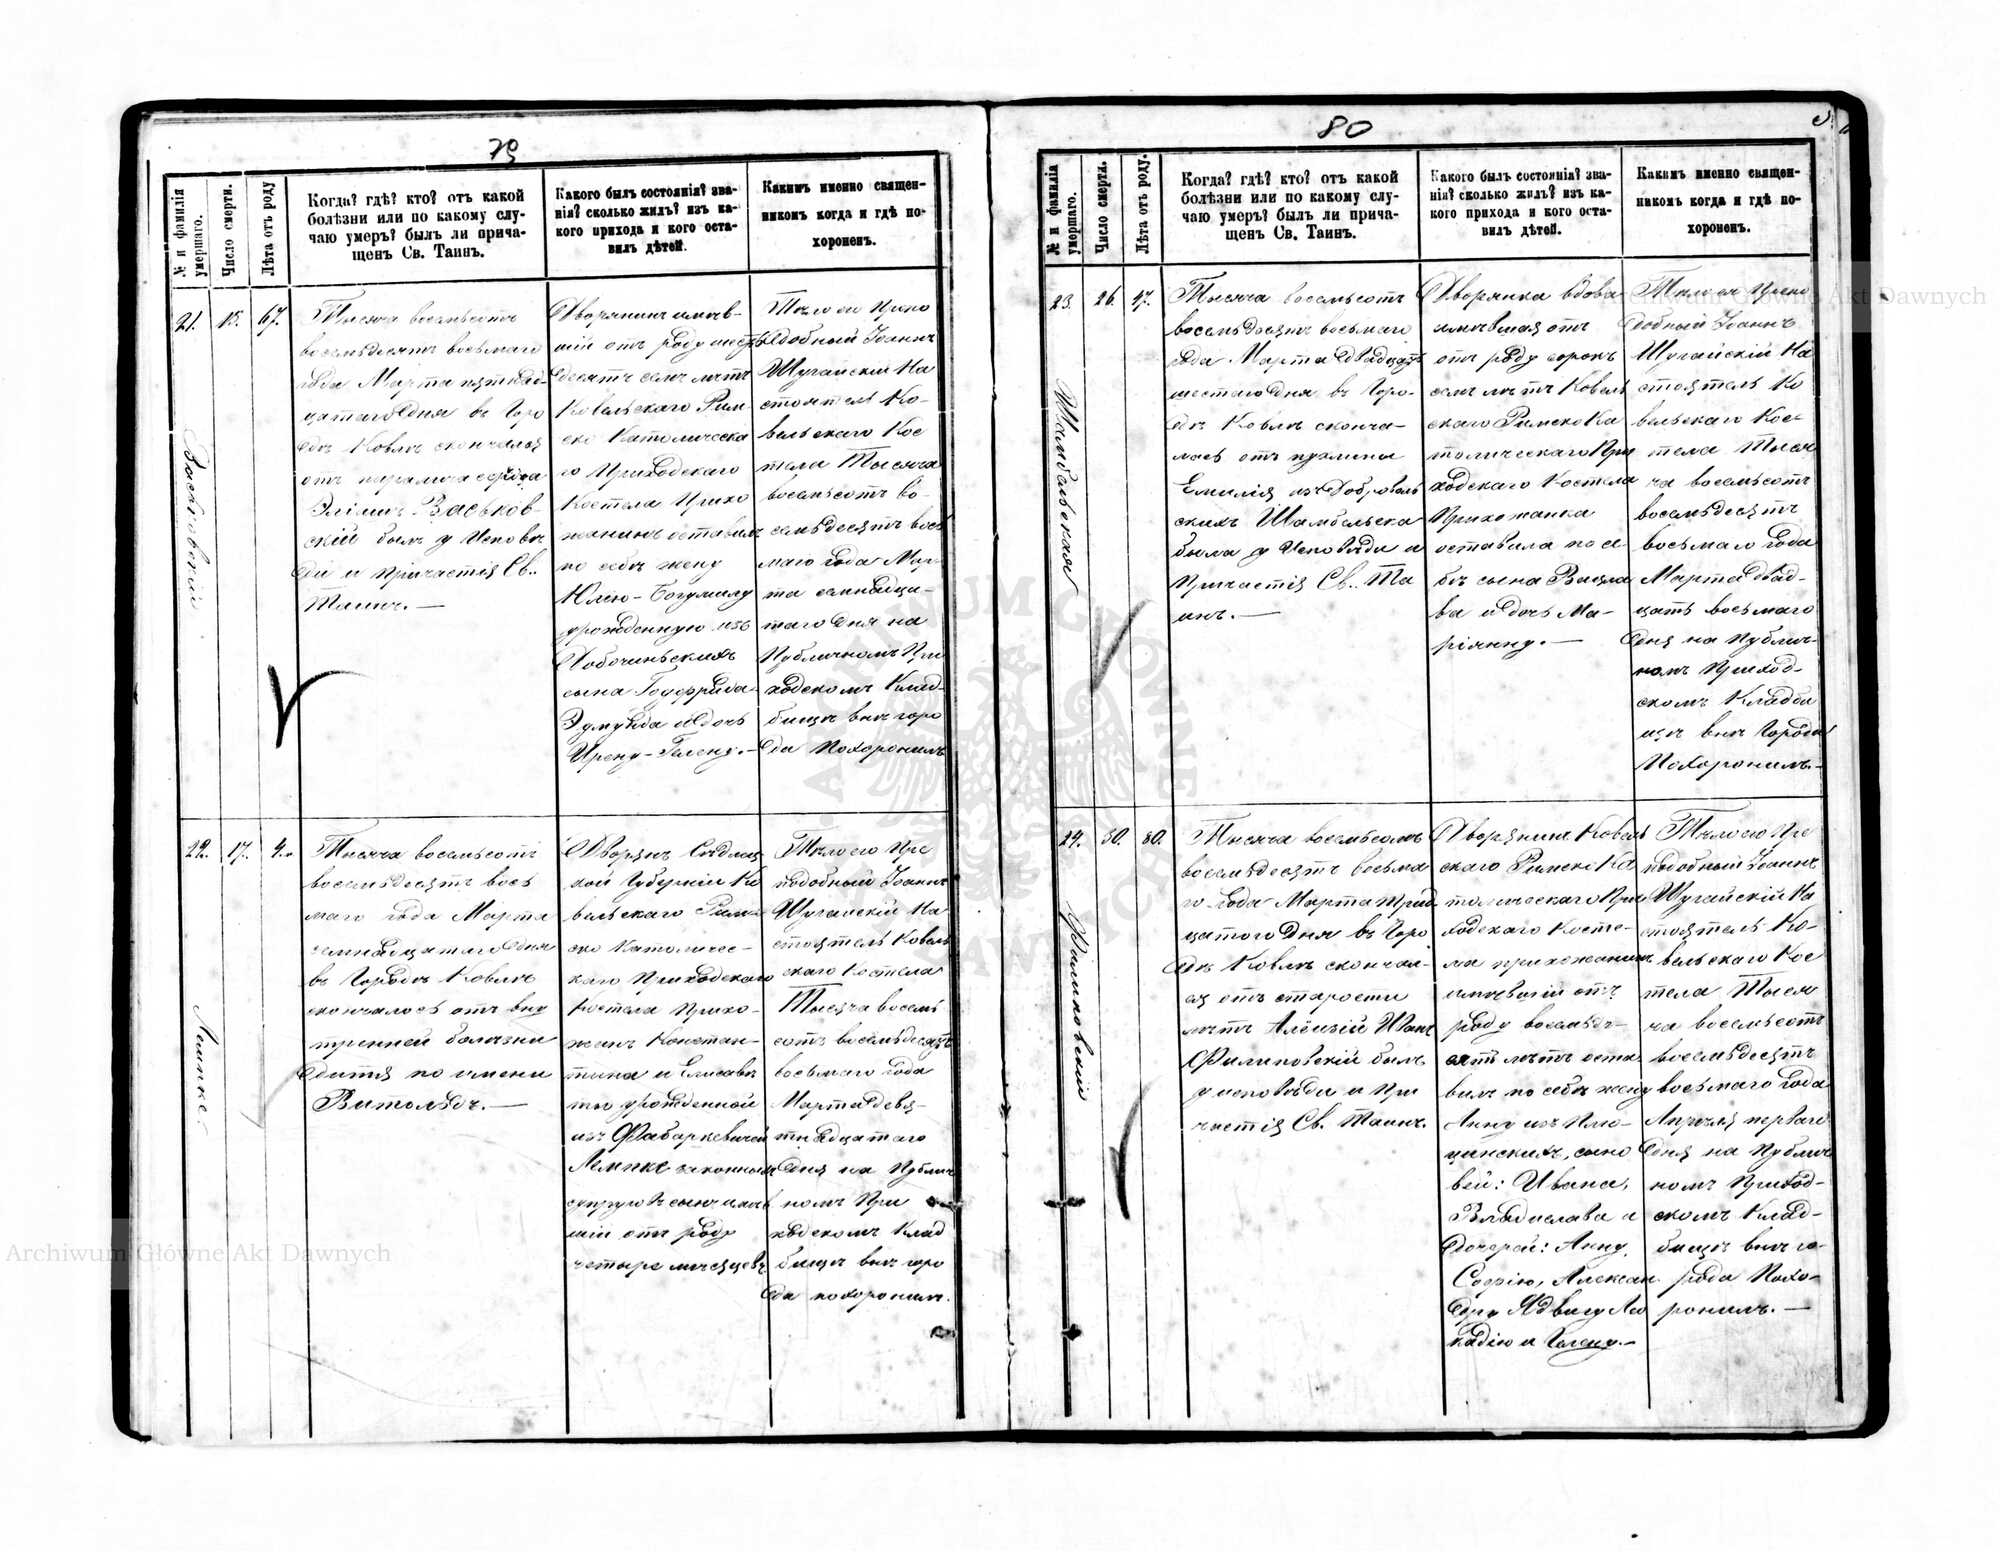 79
№ и фамилія умершаго.
Число смерти.
Лѣта отъ роду
Когда? гдѣ? кто? отъ какой
болѣзни или по какому слу-
чаю умеръ? былъ ли прича-
щенъ Св. Таинъ.
Какого былъ состоянія? зва-
нія? сколько жилъ? изъ ка-
кого прихода и кого оста-
вилъ дѣтей.
Какимъ именно священ-
никомъ когда и гдѣ по-
хороненъ.
21.
15.
67.
Васьковскій
Тысяча восемьсотъ
восемьдесятъ восьмаго
года Марта пятнад-
цатаго дня въ Горо
дѣ Ковлѣ скончался
отъ паралича сердца
Васьков-
скій былъ у Исповѣ
ди и причастія Св.
Таинъ. —
Дворянинъ имѣв-
шій отъ роду шесть
десятъ семь лѣтъ
Ковельскаго Рим-
ско Католическа
го Приходскаго
Костела Прихо
жанинъ оставилъ
по себѣ жену
Юлію-Богумилу
урожденную изъ
Добочинскихъ
сына Годфрида-
Эдмунда и дочь
Ирену-Гелену. —
Тѣло его Препо
добный Іоаннъ
Шугайскій На
стоятель Ко-
вельскаго Кос
тела Тысяча
восемьсотъ во-
семьдесятъ вось
маго года Мар-
та семнадца-
таго дня на
Публичномъ При
ходскомъ Клад-
бищѣ внѣ горо
да похоронилъ
22.
17.
4.
Лемпке.
Тысяча восемьсотъ
восемьдесятъ вось
маго года Марта
семнадцатаго дня
въ Городѣ Ковлѣ
скончалось отъ вну
тренней болѣзни
дитя по имени
Витольдъ. —
Дворянъ Сѣдлец
кой Губерніи Ко
вельскаго Рим-
ско Католичес-
каго Приходскаго
Костела Прихо-
жанъ Констан-
тина и Елисаве
ты урожденной
изъ Фабаркевичей
Лемпке законныхъ
супруговъ сынъ имѣв
шій отъ роду
четыре мѣсяцевъ
Тѣло его Пре
подобный Іоаннъ
Шугайскій На
стоятель Ковель
скаго Костела
Тысяча восемь
сотъ восемьдесятъ
восьмаго года
Марта девя-
тнадцатаго
дня на Публич
номъ При
ходскомъ Клад
бищѣ внѣ горо
да похоронилъ.
80
№ и фамилія умершаго.
Число смерти.
Лѣта отъ роду.
Когда? гдѣ? кто? отъ какой
болѣзни или по какому слу-
чаю умеръ? былъ ли прича-
щенъ Св. Таинъ.
Какого былъ состоянія? зва-
нія? сколько жилъ? изъ ка-
кого прихода и кого оста-
вилъ дѣтей.
Какимъ именно священ-
никомъ когда и гдѣ по-
хороненъ.
23.
26.
47.
Шамбельская
Тысяча восемьсотъ
восемьдесятъ восьмаго
года Марта двадцать
шестаго дня въ Горо-
дѣ Ковлѣ сконча-
лась отъ
Емилія изъ Доброволь
скихъ Шамбельска
была у Исповѣди и
Причастія Св. Та
инъ. —
Дворянка вдова
имѣвшая отъ
отъ роду сорокъ
семь лѣтъ Ковель
скаго Римско Ка
толическаго При
ходскаго Костела
Прихожанка
оставила по се-
бѣ сына Вацла
ва и дочь Ма-
ріянну. —
Тѣло ея Препо
добный Іоаннъ
Шугайскій На
стоятель Ко
вельскаго Кос-
тела Тыся
ча восемьсотъ
восемьдесятъ
восьмаго года
Марта двад-
цать восьмаго
дня на Публич-
номъ Приход-
скомъ Кладби
щѣ внѣ Города
Похоронилъ. —
24.
30.
80.
Филиповскій
Тысяча восемьсотъ
восемьдесятъ восьма
го года Марта трид
цатого Дня въ Горо
дѣ Ковлѣ скончал-
ся отъ старости
лѣтъ Алёизій Иванъ
Филиповскій былъ
у исповѣди и При
частія Св. Таинъ.
Дворянинъ Ковель
скаго Римско Ка
толическаго При
ходскаго Косте-
ла прихожанинъ
имѣвшій отъ
роду восемьдe-
сятъ лѣтъ оста
вилъ по себѣ жену
Анну изъ Плю-
цинскихъ, сыно
вей: Ивана,
Владислава и
дочерей: Анну,
Софію, Алексан-
дру Ядвигу Ле
кадію и Гелену. —
Тѣло его Пре
подобный Іоаннъ
Шугайскій На
стоятель Ко-
вельскаго Кос
тела Тыся
ча восемьсотъ
восемьдесятъ
восьмаго года
Апрѣля перваго
дня на Публич
номъ Приход-
скомъ Клад-
бищѣ внѣ го-
рода Похо-
ронилъ. —
Archiwum Główne Akt Dawnych
Archiwum Główne Akt Dawnych
ARCHIWUM GŁÓWNE AKT DAWNYCH